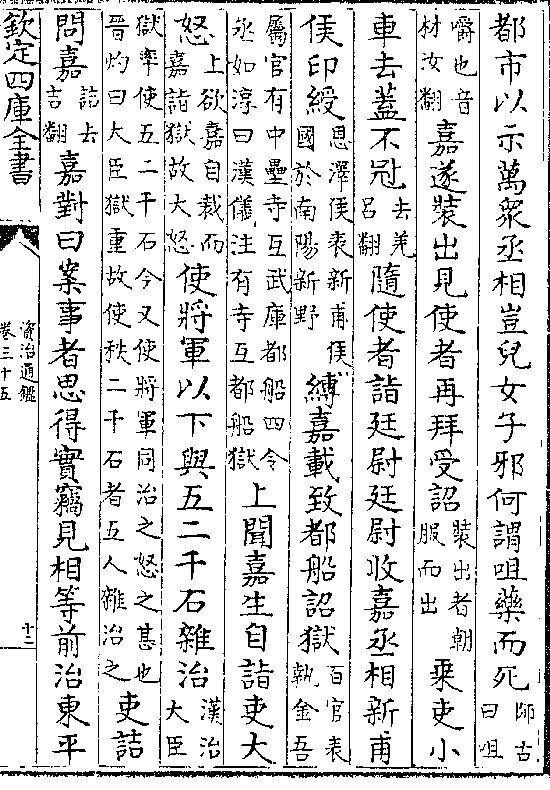 都市以示萬衆丞相豈兒女子邪何謂咀藥而死師古曰咀
嚼也音材汝翻嘉遂裝出見使者再拜受詔裝出者朝服而出乗吏小
車去蓋不冠去羌吕翻隨使者詣廷尉廷尉收嘉丞相新甫
侯印綬恩澤侯表新甫侯國於南陽新野縛嘉載致都船詔獄百官表執金吾
屬官有中壘寺互武庫都船四令丞如淳曰漢儀注有寺互都船獄上聞嘉生自詣吏大
怒上欲嘉自裁而嘉詣獄故大怒使將軍以下與五二千石雜治漢治大臣
獄率使五二千石今又使將軍同治之怒之甚也晉灼曰大臣獄重故使秩二千石者五人雜治之吏詰
問嘉詰去吉翻嘉對曰案事者思得實竊見相等前治東平
欽定四庫全書
資治通鑑
卷三十五
十二